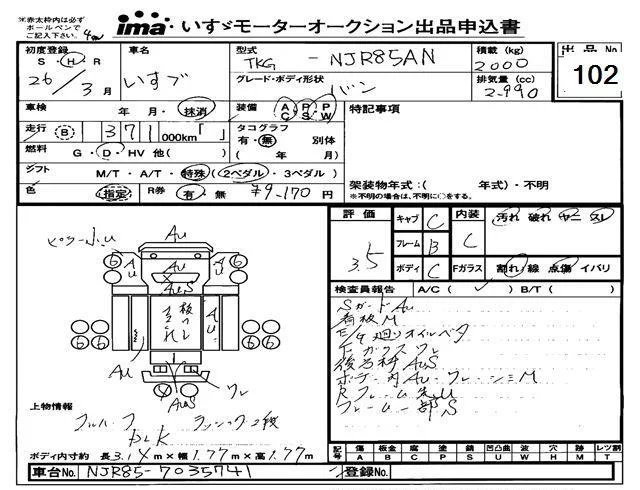 ※赤太枠内は必ず
ボールペンで
ご記入下さい。
ima いすゞモーターオークション出品申込書
初度登録 S・H・R 26/3月
車名 いすず
型式 TKG - NJR85AN
積載(kg) 2000
出品No 102
グレード・ボディ形状 バン
排気量(cc) 2,990
車検 年 月・抹消
装備 AC PS PW
特記事項
走行 B 371,000km「 」
タコグラフ 有・無 別体 ( 年 月)
燃料 G・D・HV 他( )
シフト M/T・A/T・特殊(2ペダル・3ペダル)
架装物年式:( 年式)・不明
※不明の場合は、不明に○をする。
色 指定 R券 有・無 ¥9,170円
評価 3.5
キャブ C 内装 C 汚れ 破れ ヤニ スレ
フレーム B
ボディ C Fガラス 割れ・線 点傷・イバリ
検査員報告 A/C( ✓ ) B/T( )
SガードAu
看板M
E/G廻りオイルベタ
Fガラスワレ
後方材AuS
ボデー内Au・ワレ・シミM
Rフレーム先U
フレーム一部S
Au
6 Au Au 6
AuS
6 6 Au Au 6 6
ワレ
AuS
上物情報
ボディ内寸約 長3.14m×幅1.77m×高1.77m
記号 傷A 板金B 腐C 塗P 錆S 凹凸曲U 波W 穴H 跡M レツ割T
車台No. NJR85-7035741 登録No.